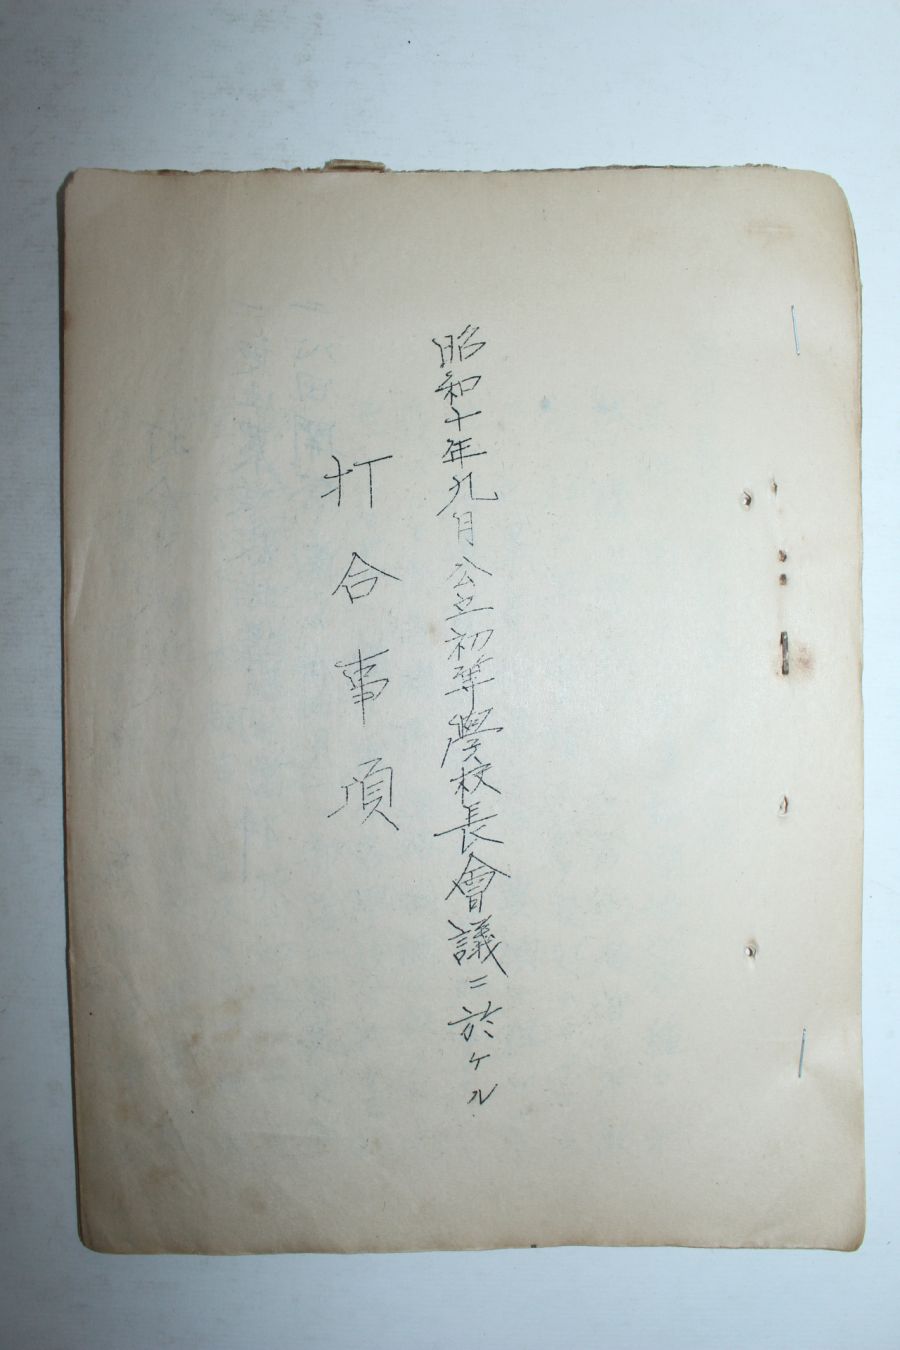 昭和十年九月公立初等學校長會議ニ於ケル
打合事項